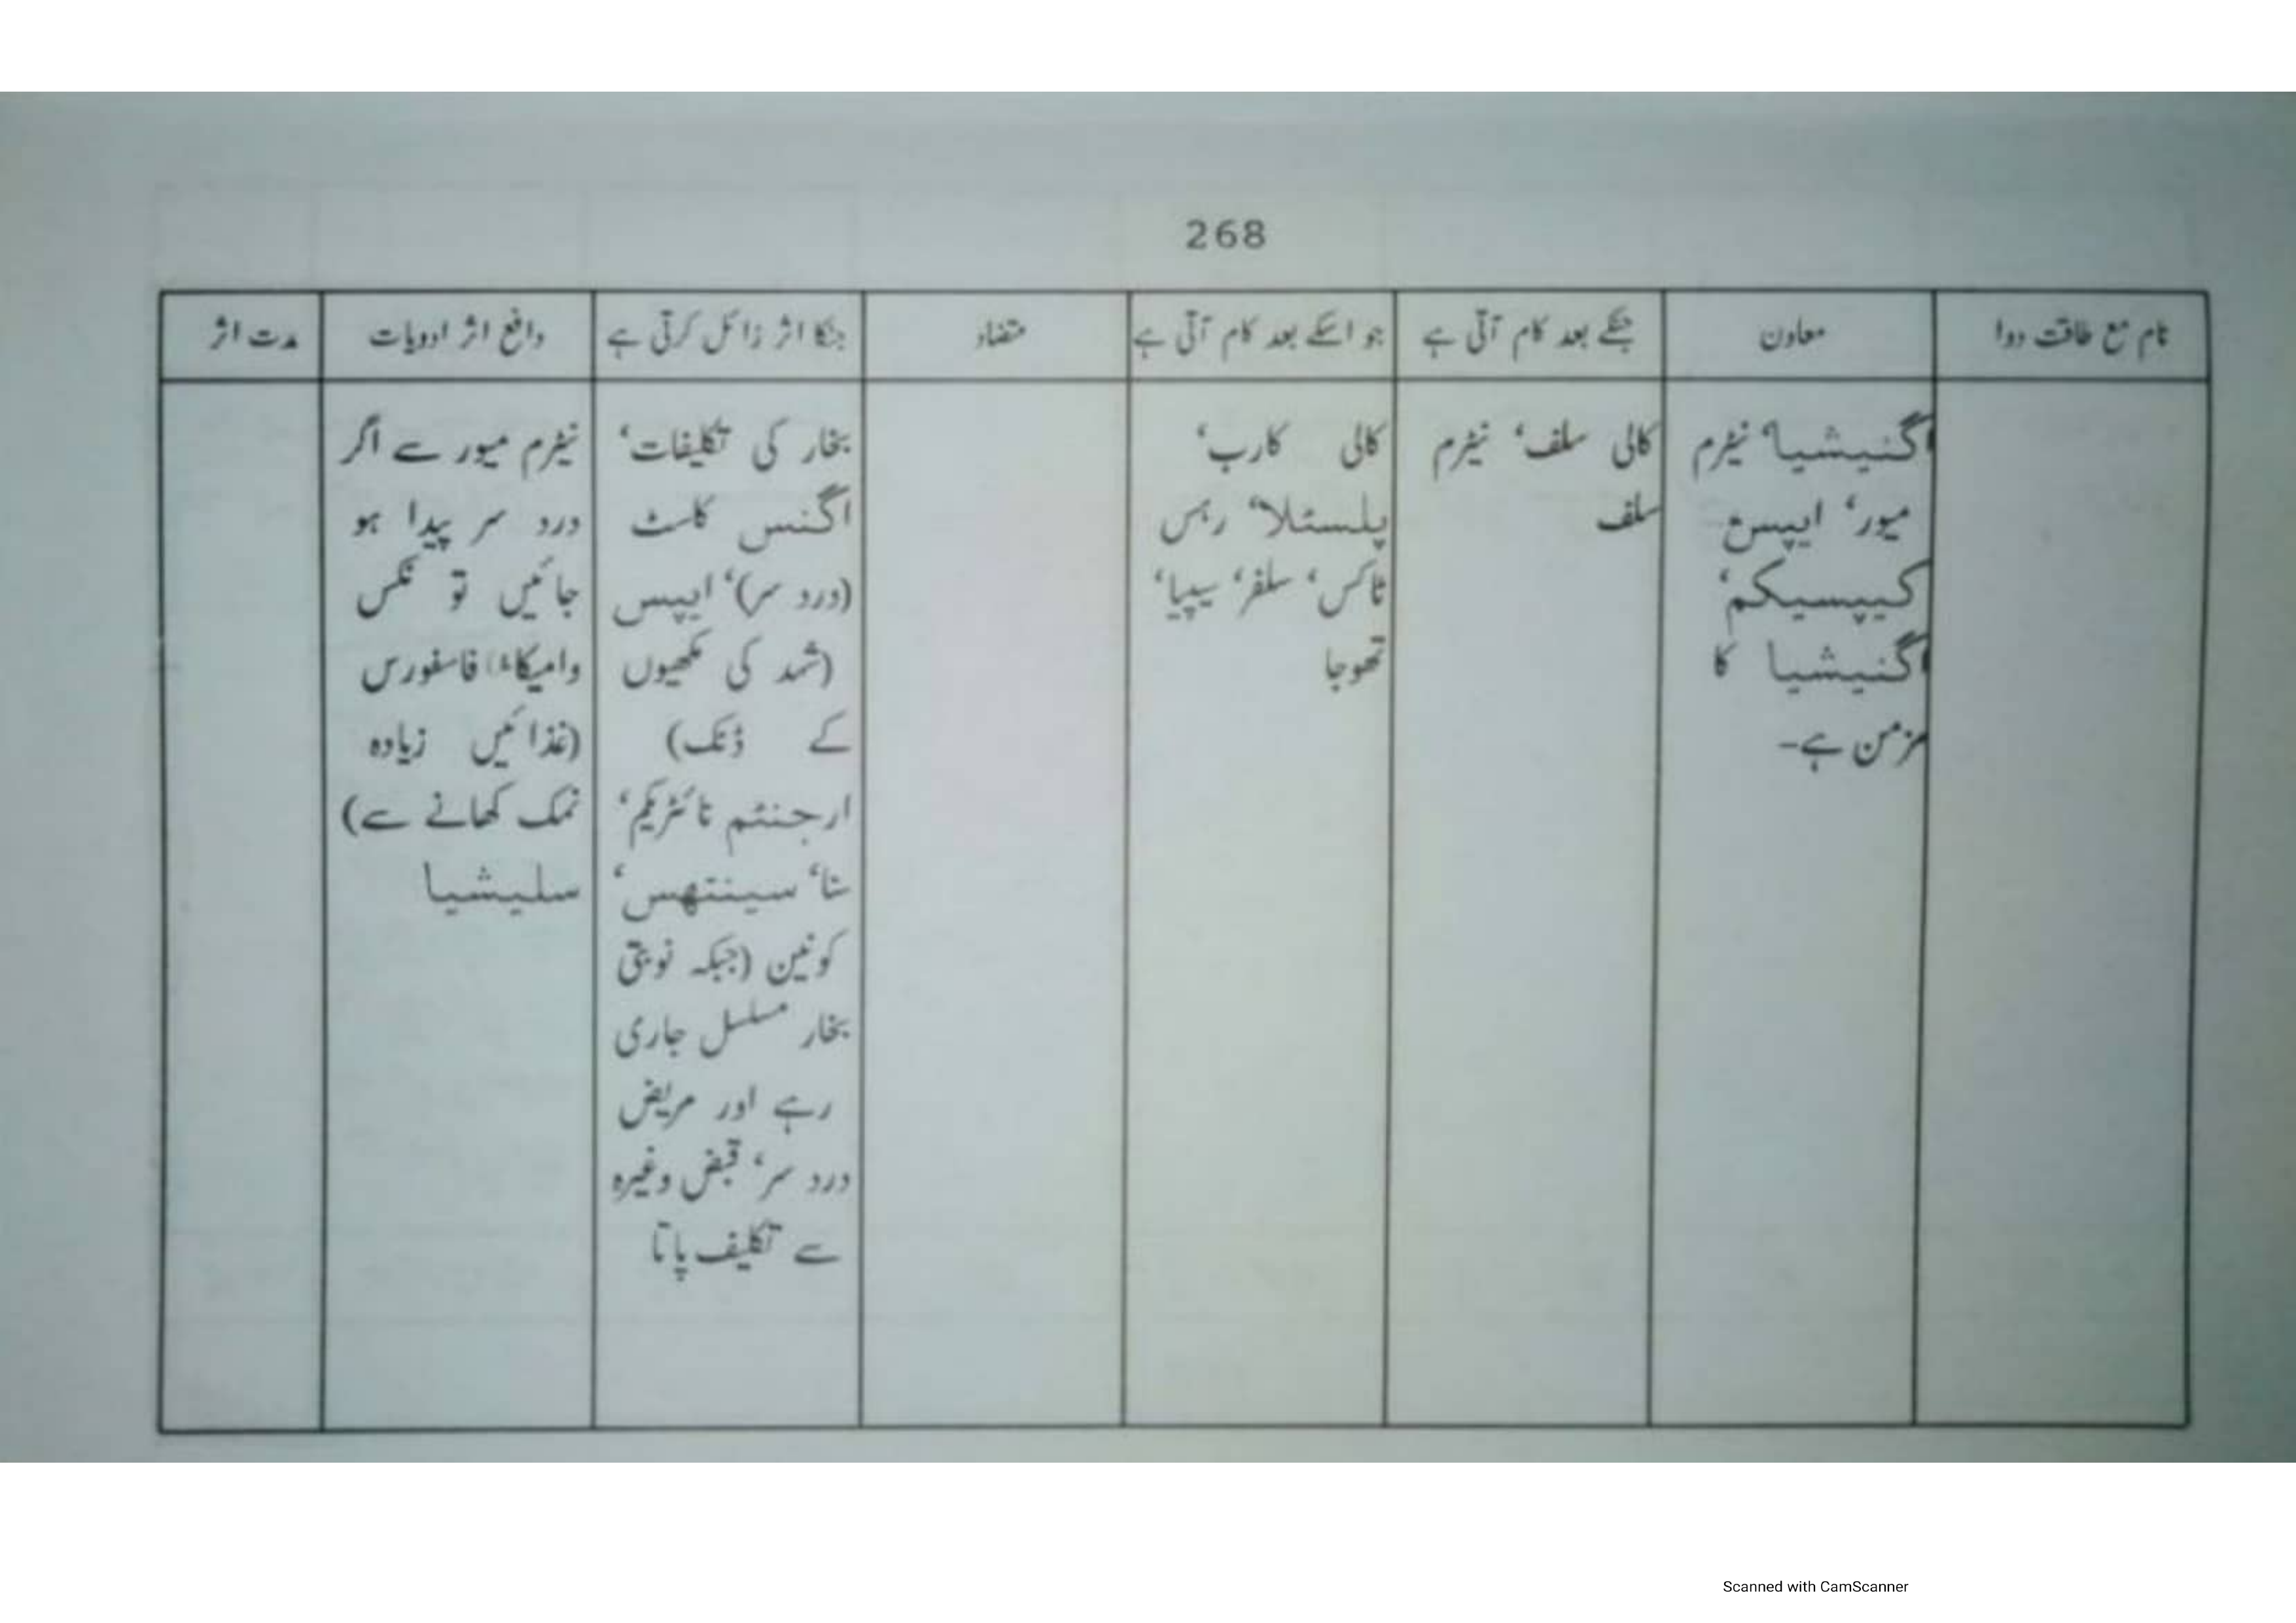 268
نام مع طاقت دوا
معاون
جسکے بعد کام آتی ہے
جو اسکے بعد کام آتی ہے
متضاد
جنکا اثر زائل کرتی ہے
دافع اثر ادویات
مدت اثر
اگنیشیا، نیٹرم
میور، ایپس،
کیپسیکم،
اگنیشیا کا
مزمن ہے۔
کالی سلف، نیٹرم
سلف
کالی کارب،
پلسٹلا، رہس
ٹاکس، سلفر، سیپیا،
تھوجا
بخار کی تکلیفات،
اگنس کاسٹ
(درد سر)، ایپس
(شہد کی مکھیوں
کے ڈنک)
ارجنٹم نائٹریکم،
سنا، سینتھس،
کونین (جبکہ نوبتی
بخار مسلسل جاری
رہے اور مریض
درد سر، قبض وغیرہ
سے تکلیف پاتا
نیٹرم میور سے اگر
درد سر پیدا ہو
جائیں تو نکس
وامیکا، فاسفورس
(غذائیں زیادہ
نمک کھانے سے)
سلیشیا
Scanned with CamScanner